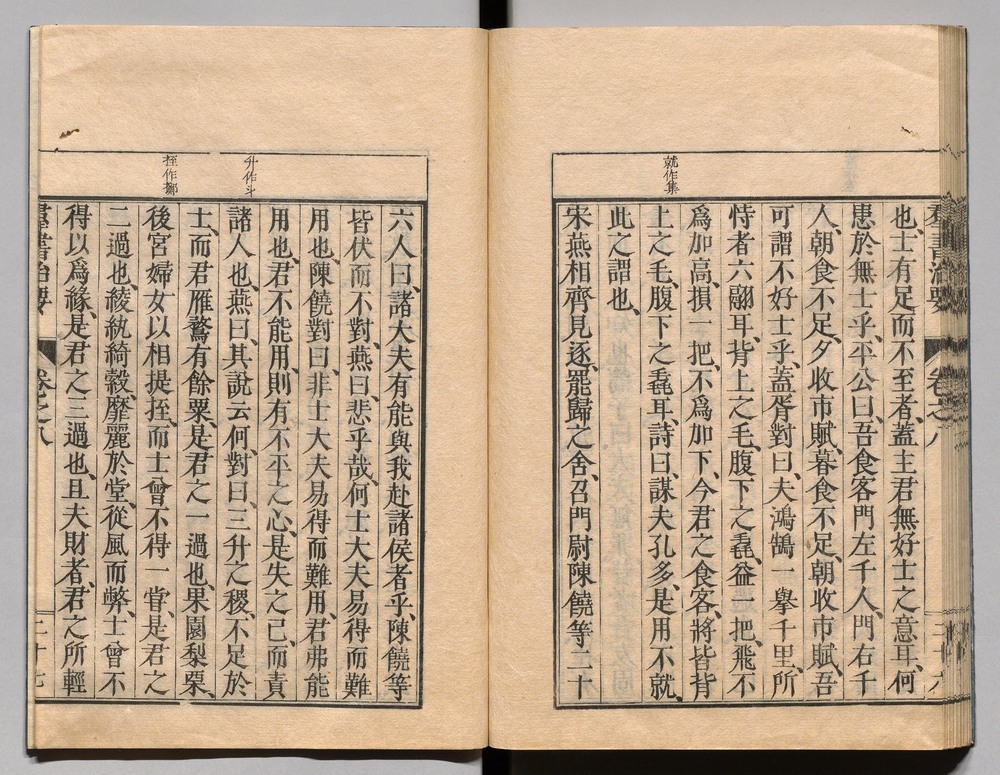 就作集
也、士有足而不至者、蓋主君無好士之意耳、何
患於無士乎、平公曰、吾食客門左千人、門右千
人、朝食不足、夕收市賦、暮食不足、朝收市賦、吾
可謂不好士乎、蓋胥對曰、夫鴻鵠一擧千里、所
恃者六翮耳、背上之毛、腹下之毳、益一把、飛不
爲加高、損一把、不爲加下、今君之食客、將皆背
上之毛、腹下之毳耳、詩曰、謀夫孔多、是用不就、
此之謂也、
宋燕相齊見逐、罷歸之舍、召門尉陳饒等二十
升作斗
挃作擲
六人曰、諸大夫有能與我赴諸侯者乎、陳饒等
皆伏而不對、燕曰、悲乎哉、何士大夫易得而難
用也、陳饒對曰、非士大夫易得而難用、君弗能
用也、君不能用、則有不平之心、是失之己、而責
諸人也、燕曰、其說云何、對曰、三升之稷、不足於
士、而君雁鶩有餘粟、是君之一過也、果園梨栗、
後宮婦女以相提挃、而士曾不得一甞、是君之
二過也、綾紈綺縠、靡麗於堂、從風而弊、士曾不
得以爲緣、是君之三過也、且夫財者、君之所輕
羣書治要 卷之八 二十七